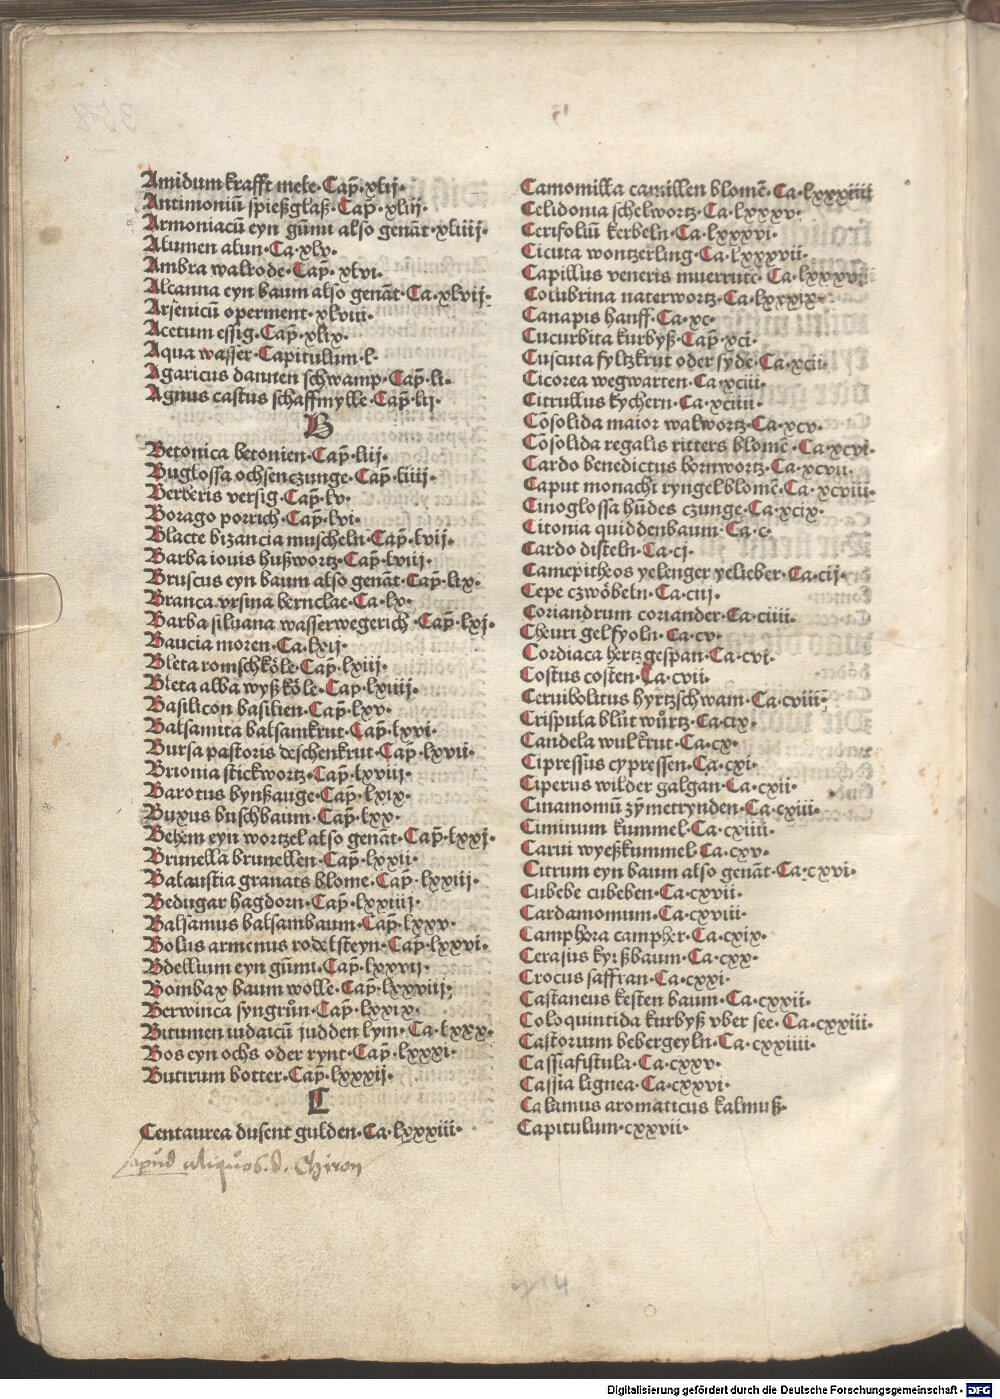 Amidum krafft mele·Cap̄·xlij·
Antimoniū spießglaß·Cap̄·xliij·
Armoniacū eyn gūmi also genāt·xliiij·
Alumen alun·Ca·xlv·
Ambra walrode·Cap̄·xlvi·
Alcanna eyn baum also genāt·Ca·xlvij·
Arsenicū operment·xlviii·
Acetum essig·Cap̄·xlix·
Aqua wasser·Capitulum·l·
Agaricus dannen schwamp·Cap̄·li·
Agnus castus schaffmylle·Cap̄·lij·
B
Betonica betonien·Cap̄·liij·
Buglossa ochsenczunge·Cap̄·liiij·
Berberis versig·Cap̄·lv·
Borago porrich·Cap̄·lvi·
Blacte bizancia muscheln·Cap̄·lvij·
Barba iouis hußwortz·Cap̄·lviij·
Bruscus eyn baum also genāt·Cap·lix·
Branca vrsina bernclae·Ca·lx·
Barba siluana wasserwegerich·Cap̄·lxj·
Baucia moren·Ca·lxij·
Bleta romschköle·Cap̄·lxiij·
Bleta alba wyß köle·Cap·lxiiij·
Basilicon basilien·Cap̄·lxv·
Balsamita balsamkrut·Cap̄·lxvi·
Bursa pastoris deschenkrut·Cap̄·lxvij·
Brionia stickwortz·Cap̄·lxviij·
Barotus bynßauge·Cap̄·lxix·
Buxus buschbaum·Cap̄·lxx·
Behem eyn wortzel also genāt·Cap̄·lxxj·
Brunella brunellen·Cap̄·lxxij·
Balaustia granats blome·Cap̄·lxxiij·
Bedugar hagdorn·Cap̄·lxxiiij·
Balsamus balsambaum·Cap̄·lxxv·
Bolus armenus rodelsteyn·Cap̄·lxxvi·
Bdellium eyn gūmi·Cap̄·lxxvij·
Bombax baum wolle·Cap̄·lxxviij·
Berwinca syngrůn·Cap̄·lxxix·
Bitumen iudaicū judden lym·Ca·lxxx·
Bos eyn ochs oder rynt·Cap̄·lxxxi·
Butirum botter·Cap̄·lxxxij·
C
Centaurea dusent gulden·Ca·lxxxiii·
apud aliquos. d. Chiron
Camomilla camillen blomē·Ca·lxxxiiii
Celidonia schelwortz·Ca·lxxxv·
Cerifoliū kerbeln·Ca·lxxxvi·
Cicuta wontzerling·Ca·lxxxvii·
Capillus veneris muerrute·Ca·lxxxv
Colubrina naterwortz·Ca·lxxxix·
Canapis hanff·Ca·xc·
Cucurbita kurbyß·Cap̄·xci·
Cuscuta fyltzkrut oder syde·Ca·xcii·
Cicorea wegwarten·Ca·xciii·
Citrullus kychern·Ca·xciiii·
Cōsolida maior walwortz·Ca·xcv·
Cōsolida regalis ritters blomē·Ca·xcvi·
Cardo benedictus bornwortz·Ca·xcvii·
Caput monachi ryngelblomē·Ca·xcviii·
Cinoglossa hūdes czunge·Ca·xcix·
Citonia quiddenbaum·Ca·c·
Cardo disteln·Ca·cj·
Camepitheos yelenger yelieber·Ca·cij·
Cepe czwöbeln·Ca·ciij·
Coriandrum coriander·Ca·ciiii·
Cheuri gelfyoln·Ca·cv·
Cordiaca hertz gespan·Ca·cvi·
Costus costen·Ca·cvii·
Ceruibolitus hyrtzschwam·Ca·cviii·
Crispula blůt wůrtz·Ca·cix·
Candela wulkrut·Ca·cx·
Cipressus cypressen·Ca·cxi·
Ciperus wilder galgan·Ca·cxii·
Cinamomū zȳmetrynden·Ca·cxiii·
Ciminum kummel·Ca·cxiiii·
Carui wyeßkummel·Ca·cxv·
Citrum eyn baum also genāt·Ca·cxvi·
Cubebe cubeben·Ca·cxvii·
Cardamomum·Ca·cxviii·
Camphora campher·Ca·cxix·
Cerasus kyrßbaum·Ca·cxx·
Crocus saffran·Ca·cxxi·
Castaneus kesten baum·Ca·cxxii·
Coloquintida kurbyß vber see·Ca·cxxiii·
Castorium bebergeyln·Ca·cxxiiii·
Cassiafistula·Ca·cxxv·
Cassia lignea·Ca·cxxvi·
Calamus aromaticus kalmuß·
Capitulum·cxxvii·
Digitalisierung gefördert durch die Deutsche Forschungsgemeinschaft - DFG